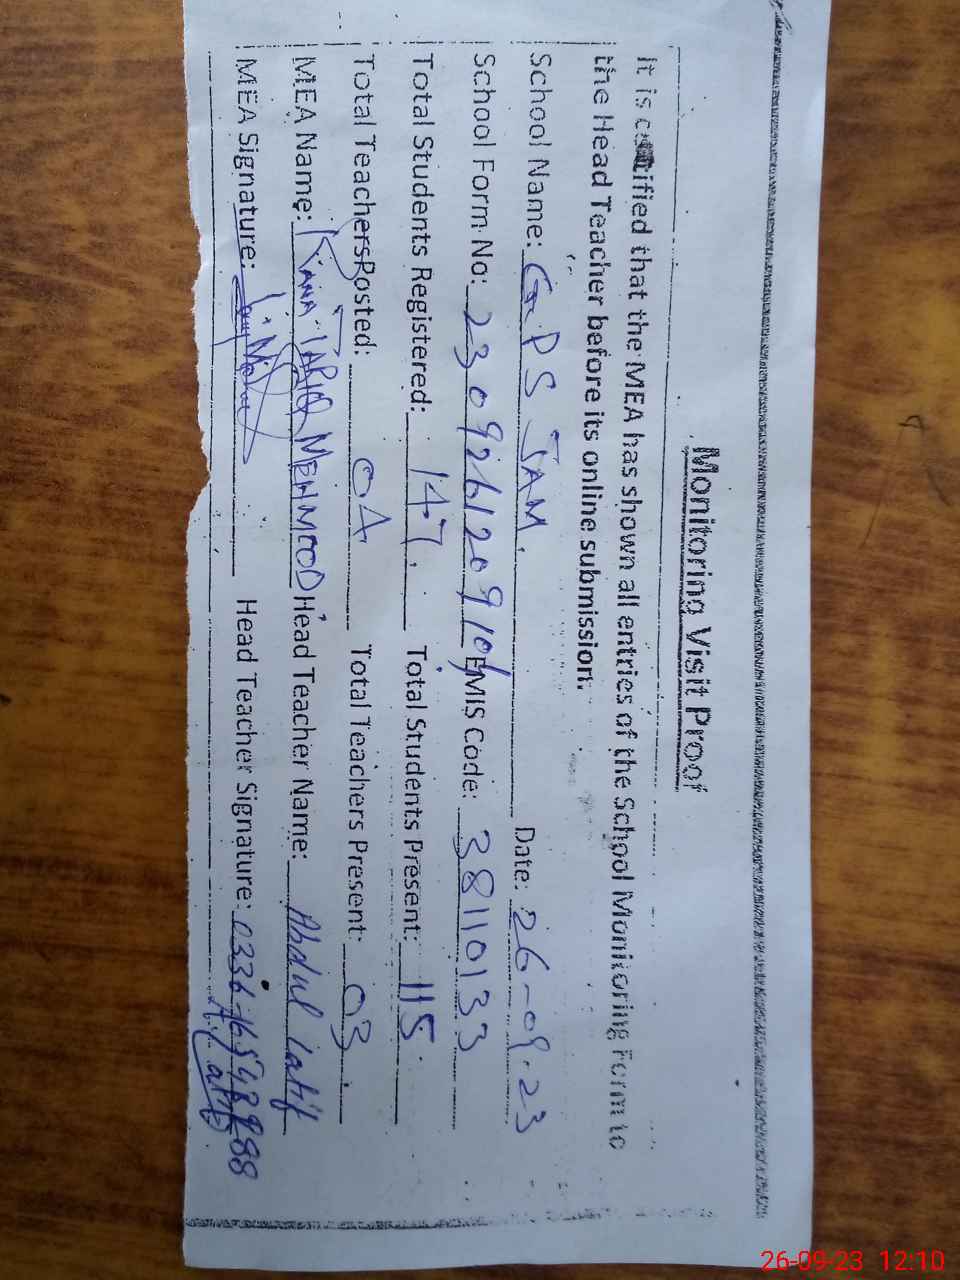 Monitoring Visit Proof
It is certified that the MEA has shown all entries of the School Monitoring Form to
the Head Teacher before its online submission.
School Name: G.PS JAM. Date: 26-09-23
School Form No: 230926120910 EMIS Code: 38110133
Total Students Registered: 147. Total Students Present: 115.
Total Teachers Posted: 04 Total Teachers Present: 03.
MEA Name: RANA TARIQ MEHMOOD Head Teacher Name: Abdul Latif
MEA Signature: Head Teacher Signature:
26-09-23 12:10